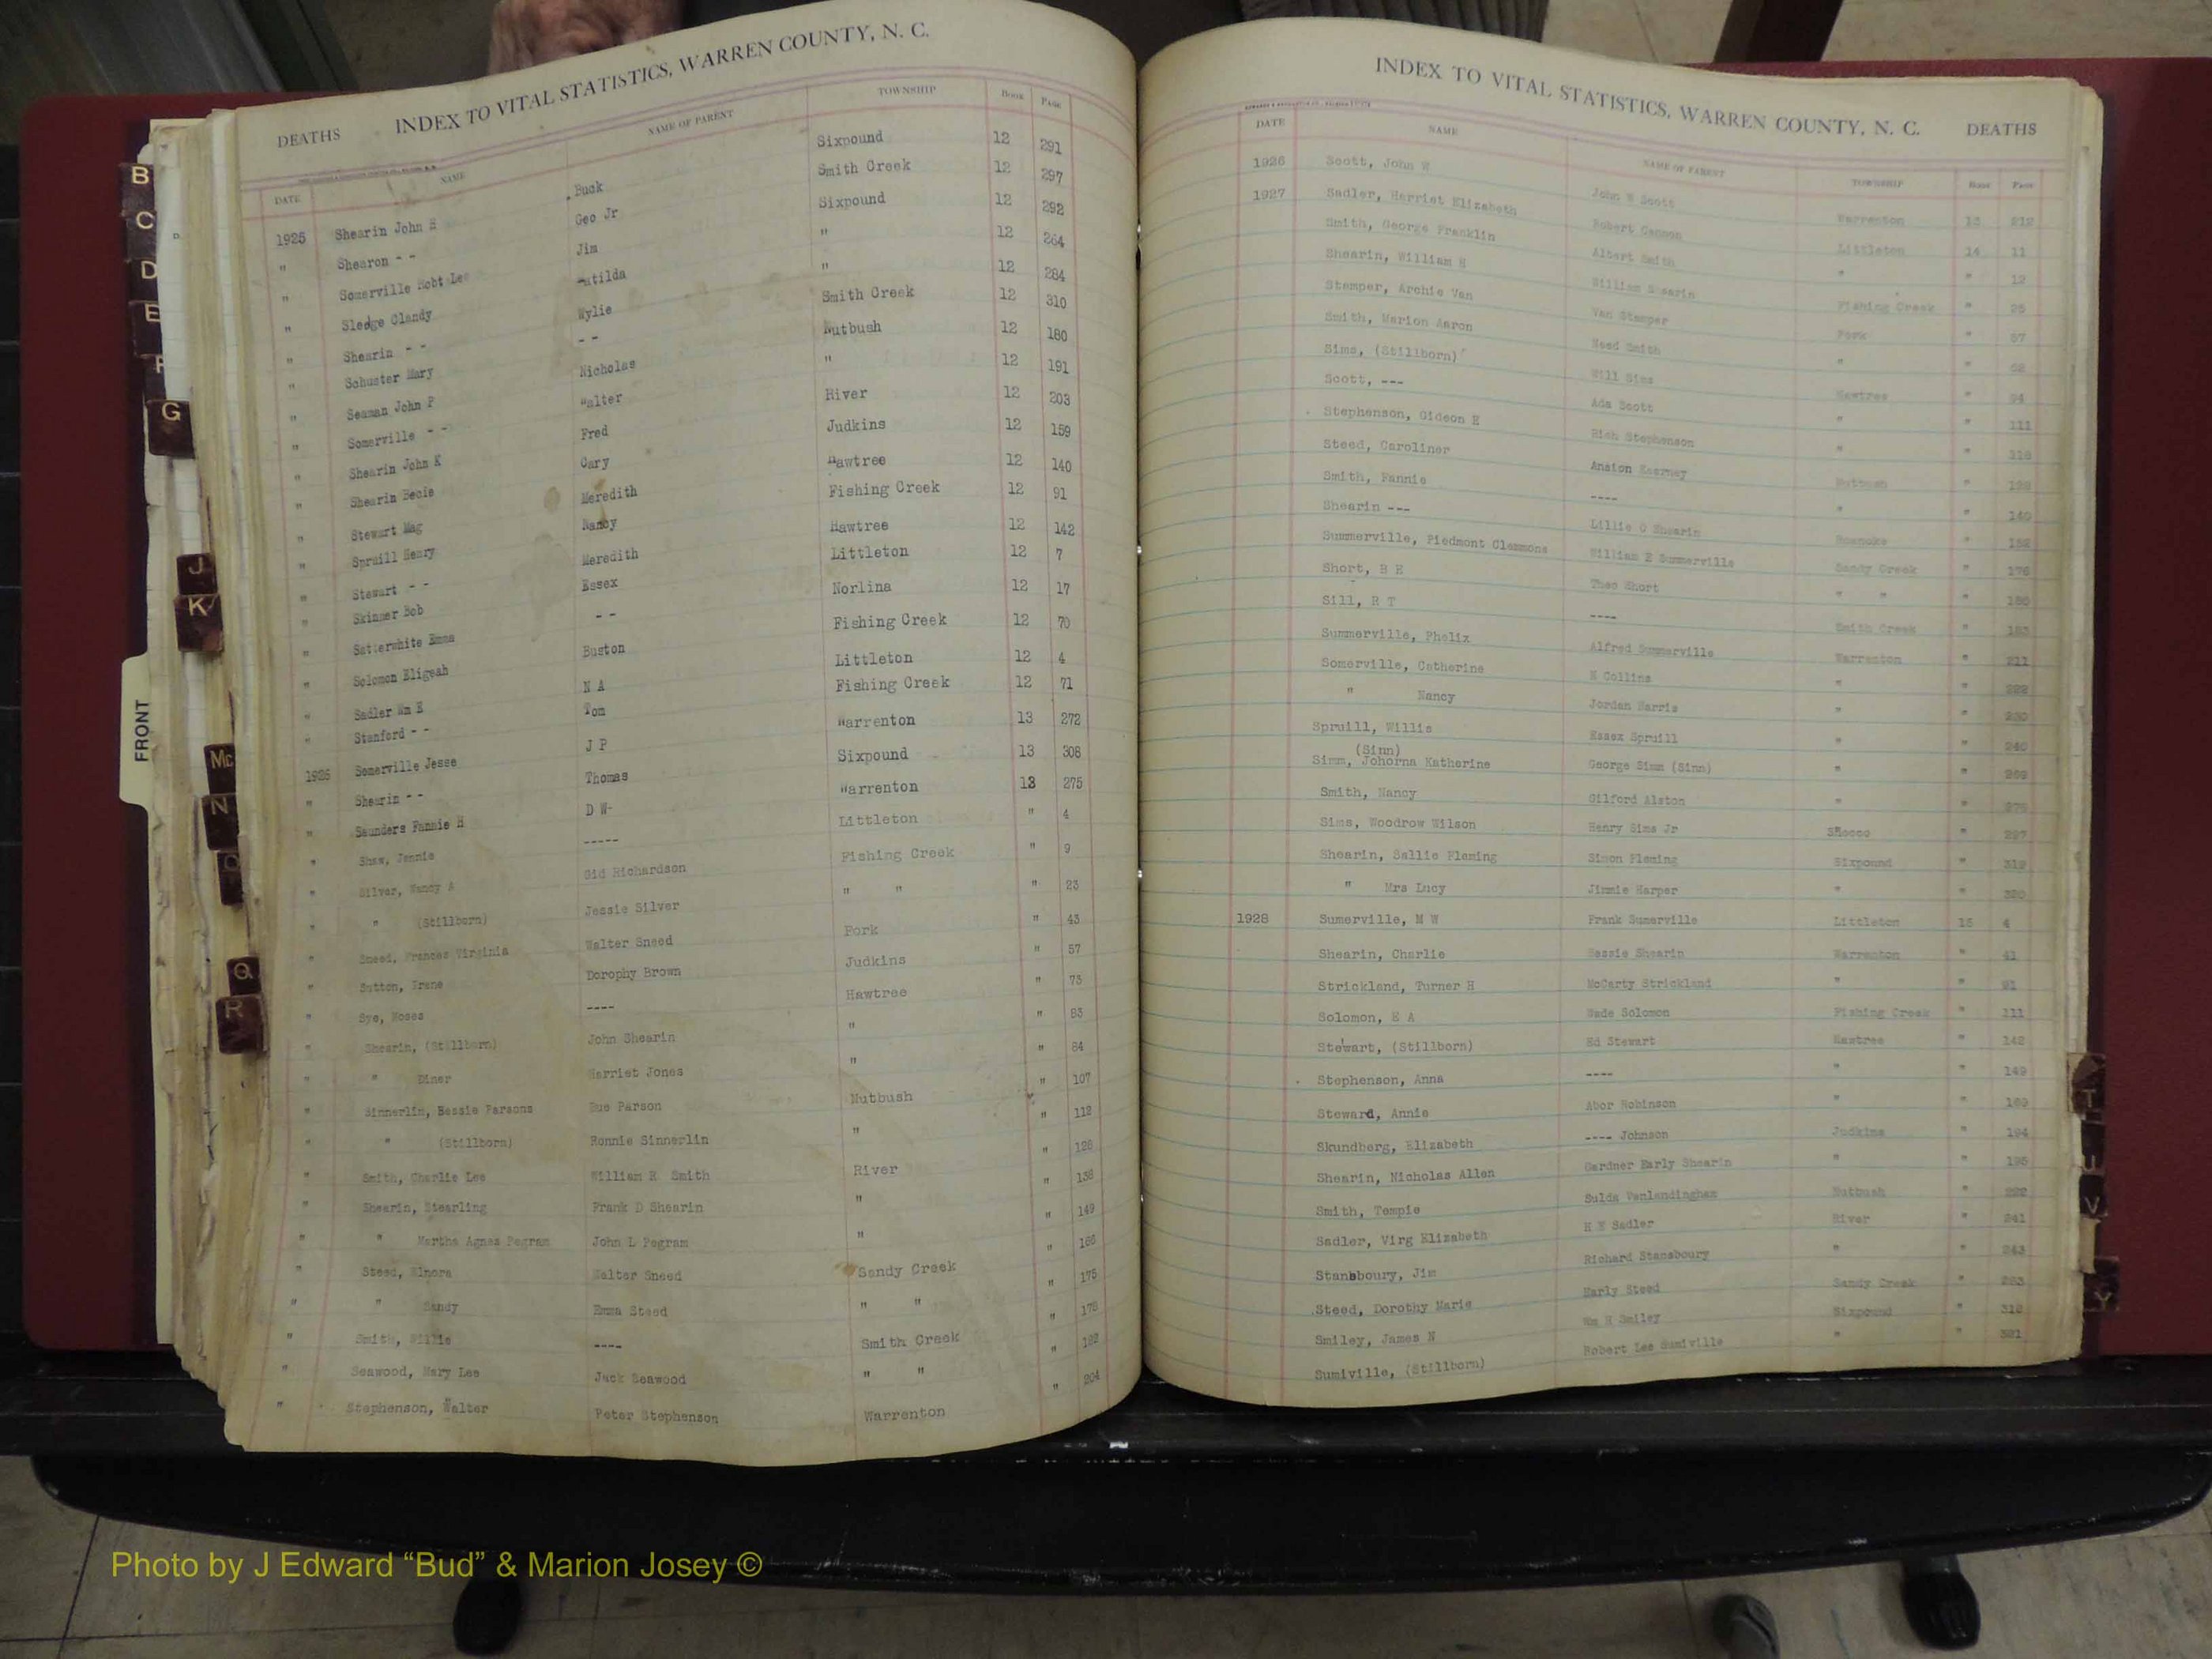 DEATHS INDEX TO VITAL STATISTICS, WARREN COUNTY, N. C.
DATE NAME NAME OF PARENT TOWNSHIP BOOK PAGE
1925 Shearin John E Buck Sixpound 12 291
" Shearon - - Geo Jr Smith Creek 12 297
" Somerville Robt Lee Jim Sixpound 12 292
" Sledge Clandy Matilda " 12 264
" Shearin - - Wylie " 12 284
" Schuster Mary - - Smith Creek 12 310
" Seaman John P Nicholas Nutbush 12 180
" Somerville - - Walter " 12 191
" Shearin John K Fred River 12 203
" Shearin Becie Cary Judkins 12 159
" Stewart Mag Meredith Hawtree 12 140
" Spruill Henry Nancy Fishing Creek 12 91
" Stewart - - Meredith Hawtree 12 142
" Skinner Bob Essex Littleton 12 7
" Satterwhite Emma - - Norlina 12 17
" Solomon Eligeah Buston Fishing Creek 12 70
" Sadler Wm E N A Littleton 12 4
" Stanford - - Tom Fishing Creek 12 71
1926 Somerville Jesse J P Warrenton 13 272
" Shearin - - Thomas Sixpound 13 308
" Saunders Fannie H D W- Warrenton 13 275
" Shaw, Jennie ----- Littleton " 4
" Silver, Nancy A Gid Richardson Fishing Creek " 9
" " (Stillborn) Jessie Silver " " " 23
" Sneed, Frances Virginia Walter Sneed Fork " 43
" Sutton, Irene Dorophy Brown Judkins " 57
" Sye, Moses ---- Hawtree " 73
" Shearin, (Stillborn) John Shearin " " 83
" " Diner Harriet Jones " " 84
" Sinnerlin, Bessie Parsons Rue Parson Nutbush " 107
" " (Stillborn) Ronnie Sinnerlin " " 112
" Smith, Charlie Lee William R Smith River " 128
" Shearin, Stearling Frank D Shearin " " 138
" " Martha Agnes Pegram John L Pegram " " 149
" Steed, Elnora Walter Sneed Sandy Creek " 166
" " Sandy Emma Steed " " " 175
" Smith, Willie ---- Smith Creek " 178
" Seawood, Mary Lee Jack Seawood " " " 192
" Stephenson, Walter Peter Stephenson Warrenton " 204
INDEX TO VITAL STATISTICS, WARREN COUNTY, N. C. DEATHS
DATE NAME NAME OF PARENT TOWNSHIP BOOK PAGE
1926 Scott, John W John W Scott Warrenton 13 212
1927 Sadler, Harriet Elizabeth Robert Cannon Littleton 14 11
Smith, George Franklin Albert Smith " " 12
Shearin, William H William Shearin Fishing Creek " 25
Stamper, Archie Van Van Stamper Fork " 57
Smith, Marion Aaron Need Smith " "
Sims, (Stillborn) Will Sims Hawtree " 94
Scott, --- Ada Scott " " 111
Stephenson, Gideon E Rich Stephenson " "
Steed, Caroliner Ansion Kearney Nutbush "
Smith, Fannie ---- " " 140
Shearin --- Lillie O Shearin Roanoke " 152
Summerville, Piedmont Clemmons William E Summerville Sandy Creek " 176
Short, B E Theo Short " " " 180
Sill, R T ---- Smith Creek " 183
Summerville, Phelix Alfred Summerville Warrenton " 211
Somerville, Catherine N Collins " " 222
" Nancy Jordan Harris " " 230
Spruill, Willis Essex Spruill " " 246
(Sinn)
Simm, Johorna Katherine George Simm (Sinn) " " 269
Smith, Nancy Gilford Alston " "
Sims, Woodrow Wilson Henry Sims Jr Shocco " 297
Shearin, Sallie Fleming Simon Fleming Sixpound " 312
" Mrs Lucy Jimmie Harper " " 320
1928 Sumerville, M W Frank Sumerville Littleton 15 4
Shearin, Charlie Bessie Shearin Warrenton " 41
Strickland, Turner H McCarty Strickland " " 91
Solomon, E A Wade Solomon Fishing Creek " 111
Stewart, (Stillborn) Ed Stewart Hawtree " 142
Stephenson, Anna ---- " " 149
Steward, Annie Abor Robinson " " 169
Skundberg, Elizabeth ---- Johnson Judkins " 194
Shearin, Nicholas Allen Gardner Early Shearin " " 195
Smith, Tempie Sulda Vanlandingham Nutbush "
Sadler, Virg Elizabeth H E Sadler River " 241
Stansboury, Jim Richard Stansboury " " 243
Steed, Dorothy Marie Early Steed Sandy Creek " 283
Smiley, James N Wm H Smiley Sixpound " 318
Sumiville, (Stillborn) Robert Lee Sumiville " " 321
B
C
D
E
F
G
J
K
Mc
N
O
Q
R
T
U
V
Y
FRONT
Photo by J Edward “Bud” & Marion Josey ©